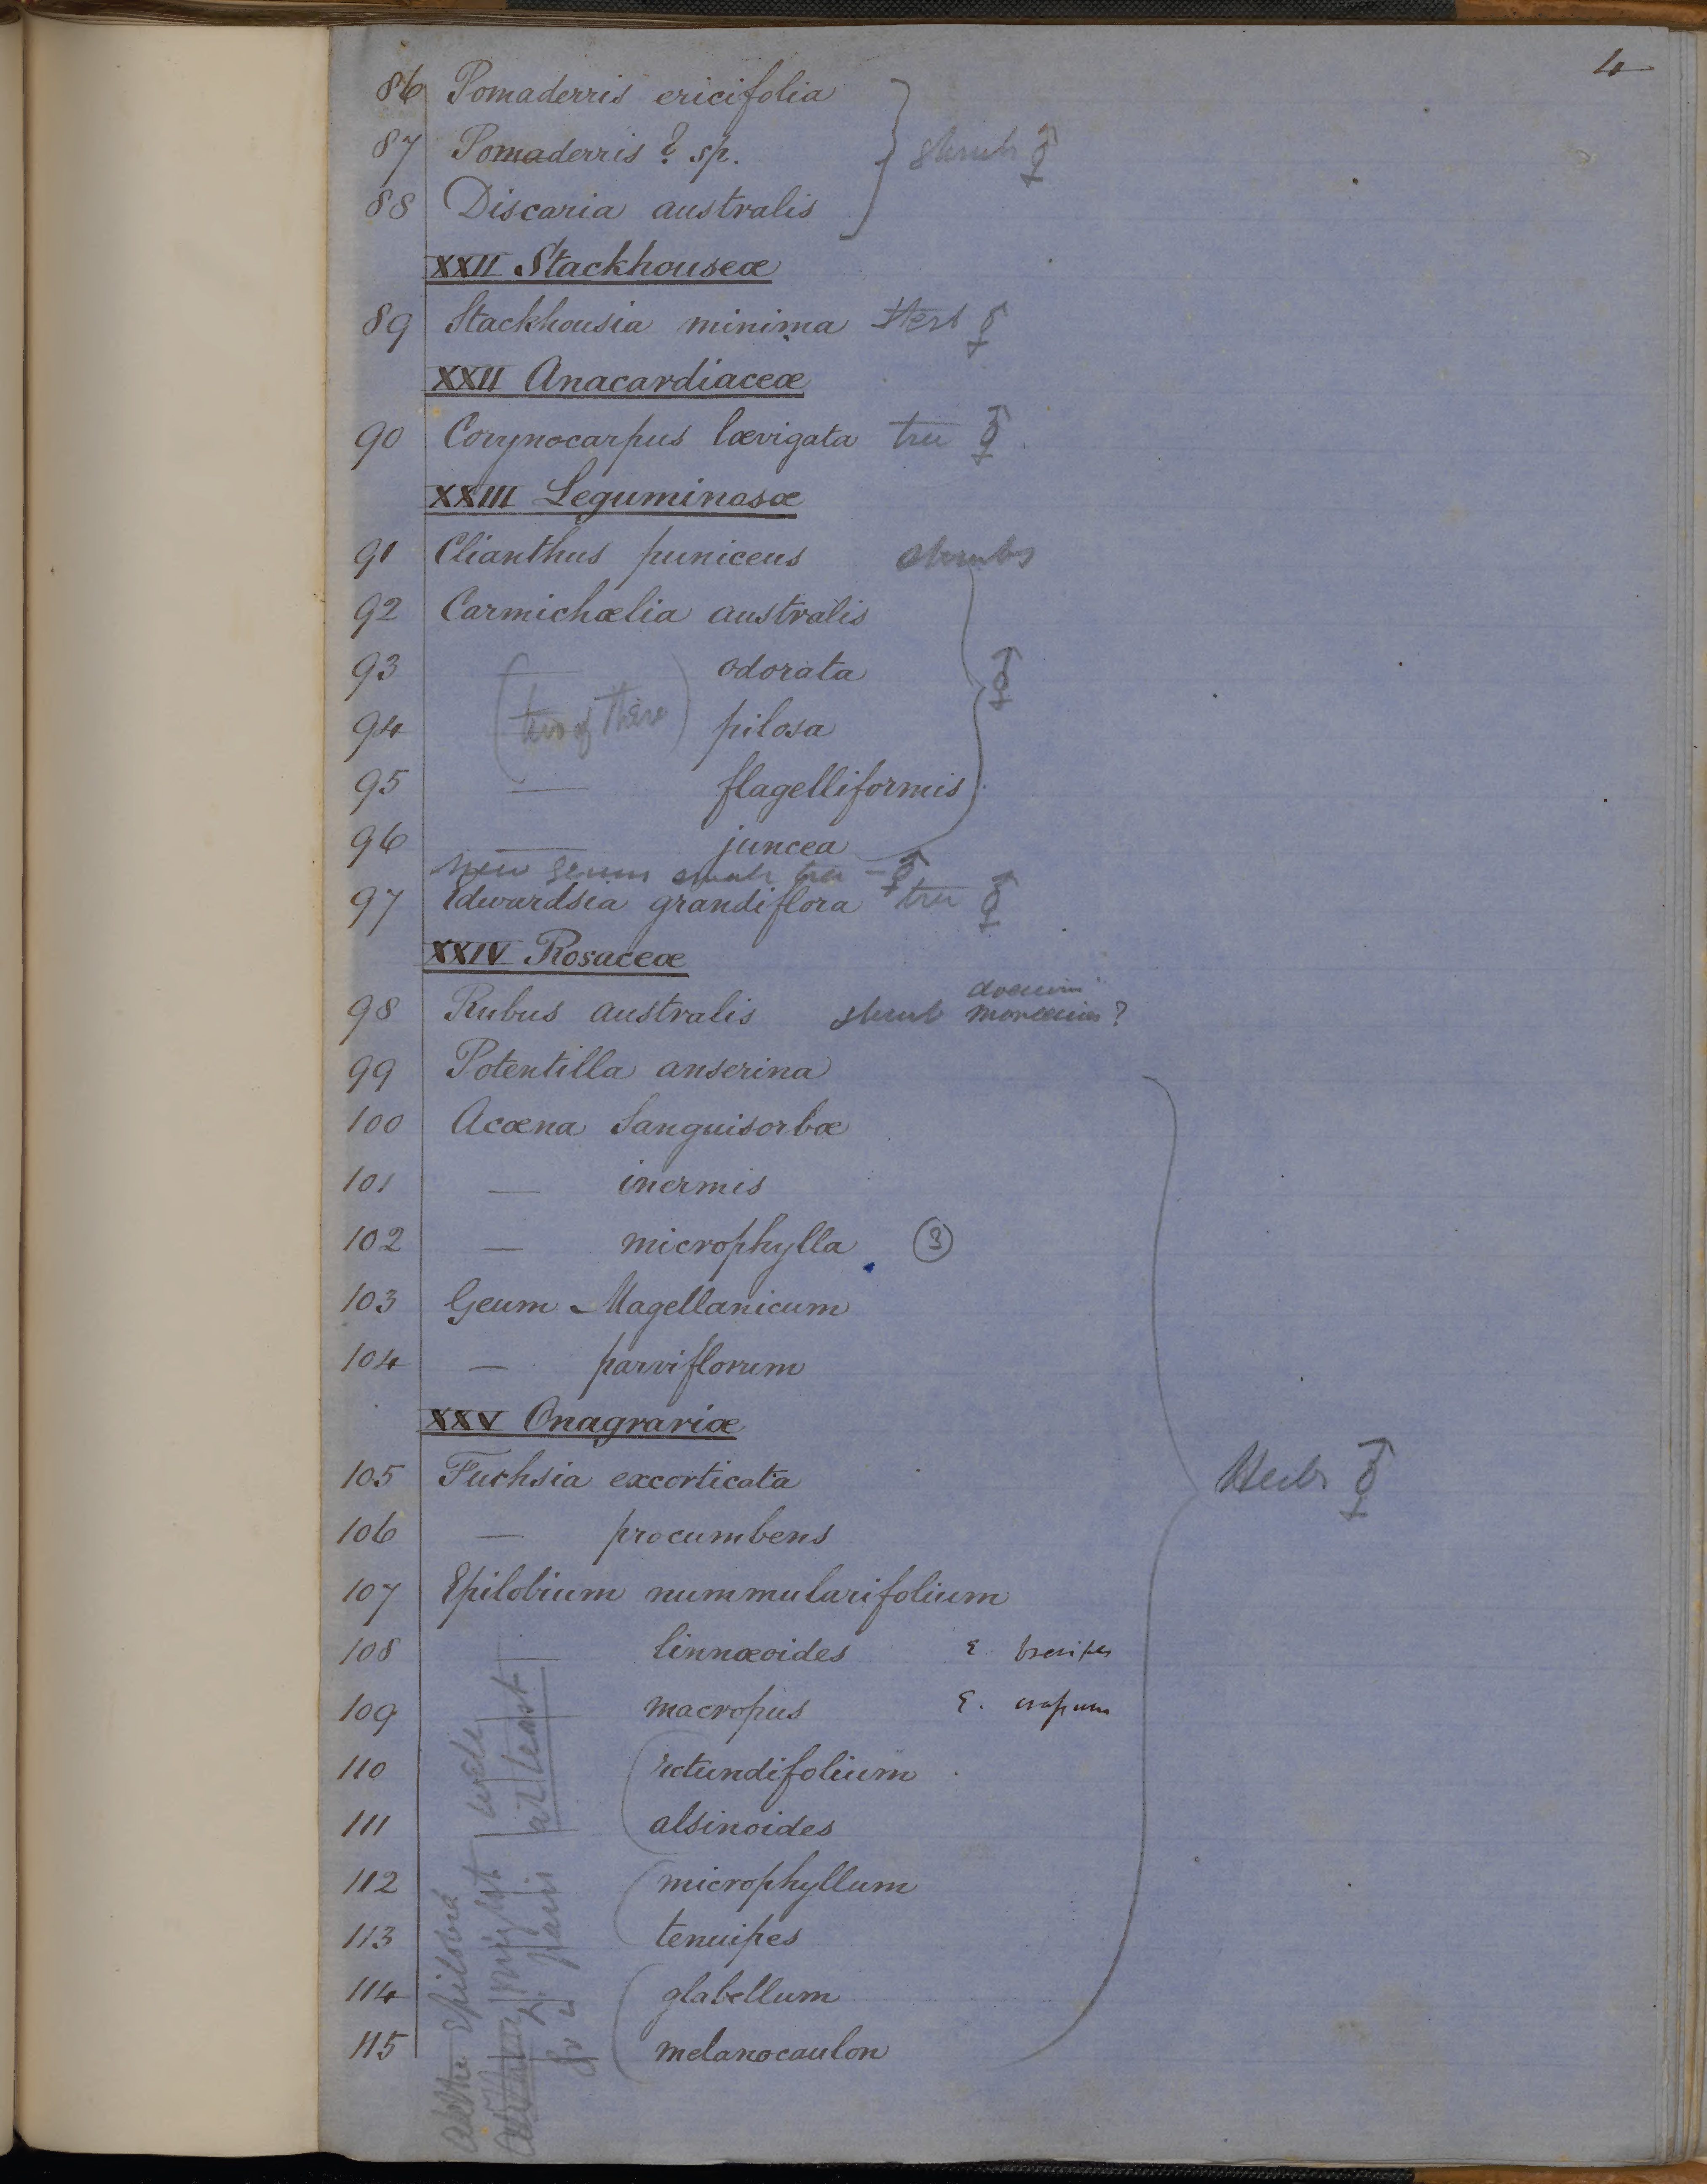 4
86 Pomaderris ericifolia
87 Pomaderris ? sp. shrubs ⚥
88 Discaria australis
XXII Stackhouseæ
89 Stackhousia minima Herb ⚥
XXII Anacardiaceæ
90 Corynocarpus lævigata tree ⚥
XXIII Leguminosæ
91 Clianthus puniceus shrubs
92 Carmichælia australis
93 — odorata ⚥
94 (two of these) pilosa
95 — flagelliformis
96 — juncea
new genus small tree — ⚥
97 Edwardsia grandiflora tree ⚥
XXIV Rosaceæ
dioecious
98 Rubus australis shrub monoecious?
99 Potentilla anserina
100 Acæna Sanguisorbæ
101 — inermis
102 — microphylla ③
103 Geum Magellanicum
104 — parviflorum
XXV Onagrariæ
105 Fuchsia excorticata Herbs ⚥
106 — procumbens
107 Epilobium nummularifolium
108 — linnæoides E. brevipes
109 — macropus E. crassum
110 rotundifolium
111 alsinoides
112 microphyllum
113 tenuipes
114 glabellum
115 melanocaulon
all the Epilobia
might well
for 2 pairs at least